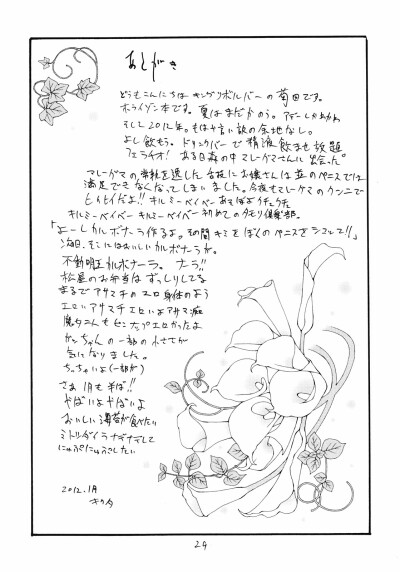 あとがき
どうもこんにちは キングリボルバーの菊田です。
ホライゾン本です。夏はまだかのう。
そして2012年。もはや言い訳の余地なし。
よし飲もう。ドリンクバーで精液飲ませ放題
フェラチオ! ある日森の中マレーグマさんに出会った
マレーグマの を逸した舌技にお嬢さんは並のペニスでは
満足できなくなってしまいました。今夜もマレーグマのウンニで
ヒィヒィだよ!! キルミーベイベー あそぼよ
キルミーベイベー キルミーベイベー 初めてのタモリ倶楽部。
「よーしカルボナーラ作るよ。その間キミをぼくのペニスを シてて!!」
毎日、そこにはおいしいカルボナーラが。
不動明王カルボナーラ。ナーラ!!
松屋のお弁当はずっしりしてる
まるでアサマチのエロ身体のよう
エロいアサマチエロいよアサマ
魔タニんもセンナップエロかったよ
がっちゃんの一部の小ささが
気になりました。
ちっちゃいよ(一部が)
さぁ 1月も半ば!!
やばいよやばいよ
おいしい海苔が食べたい
ミトツダイラナギナギして
にゅぷにゅぷしたい
2012.1月
キクタ
24